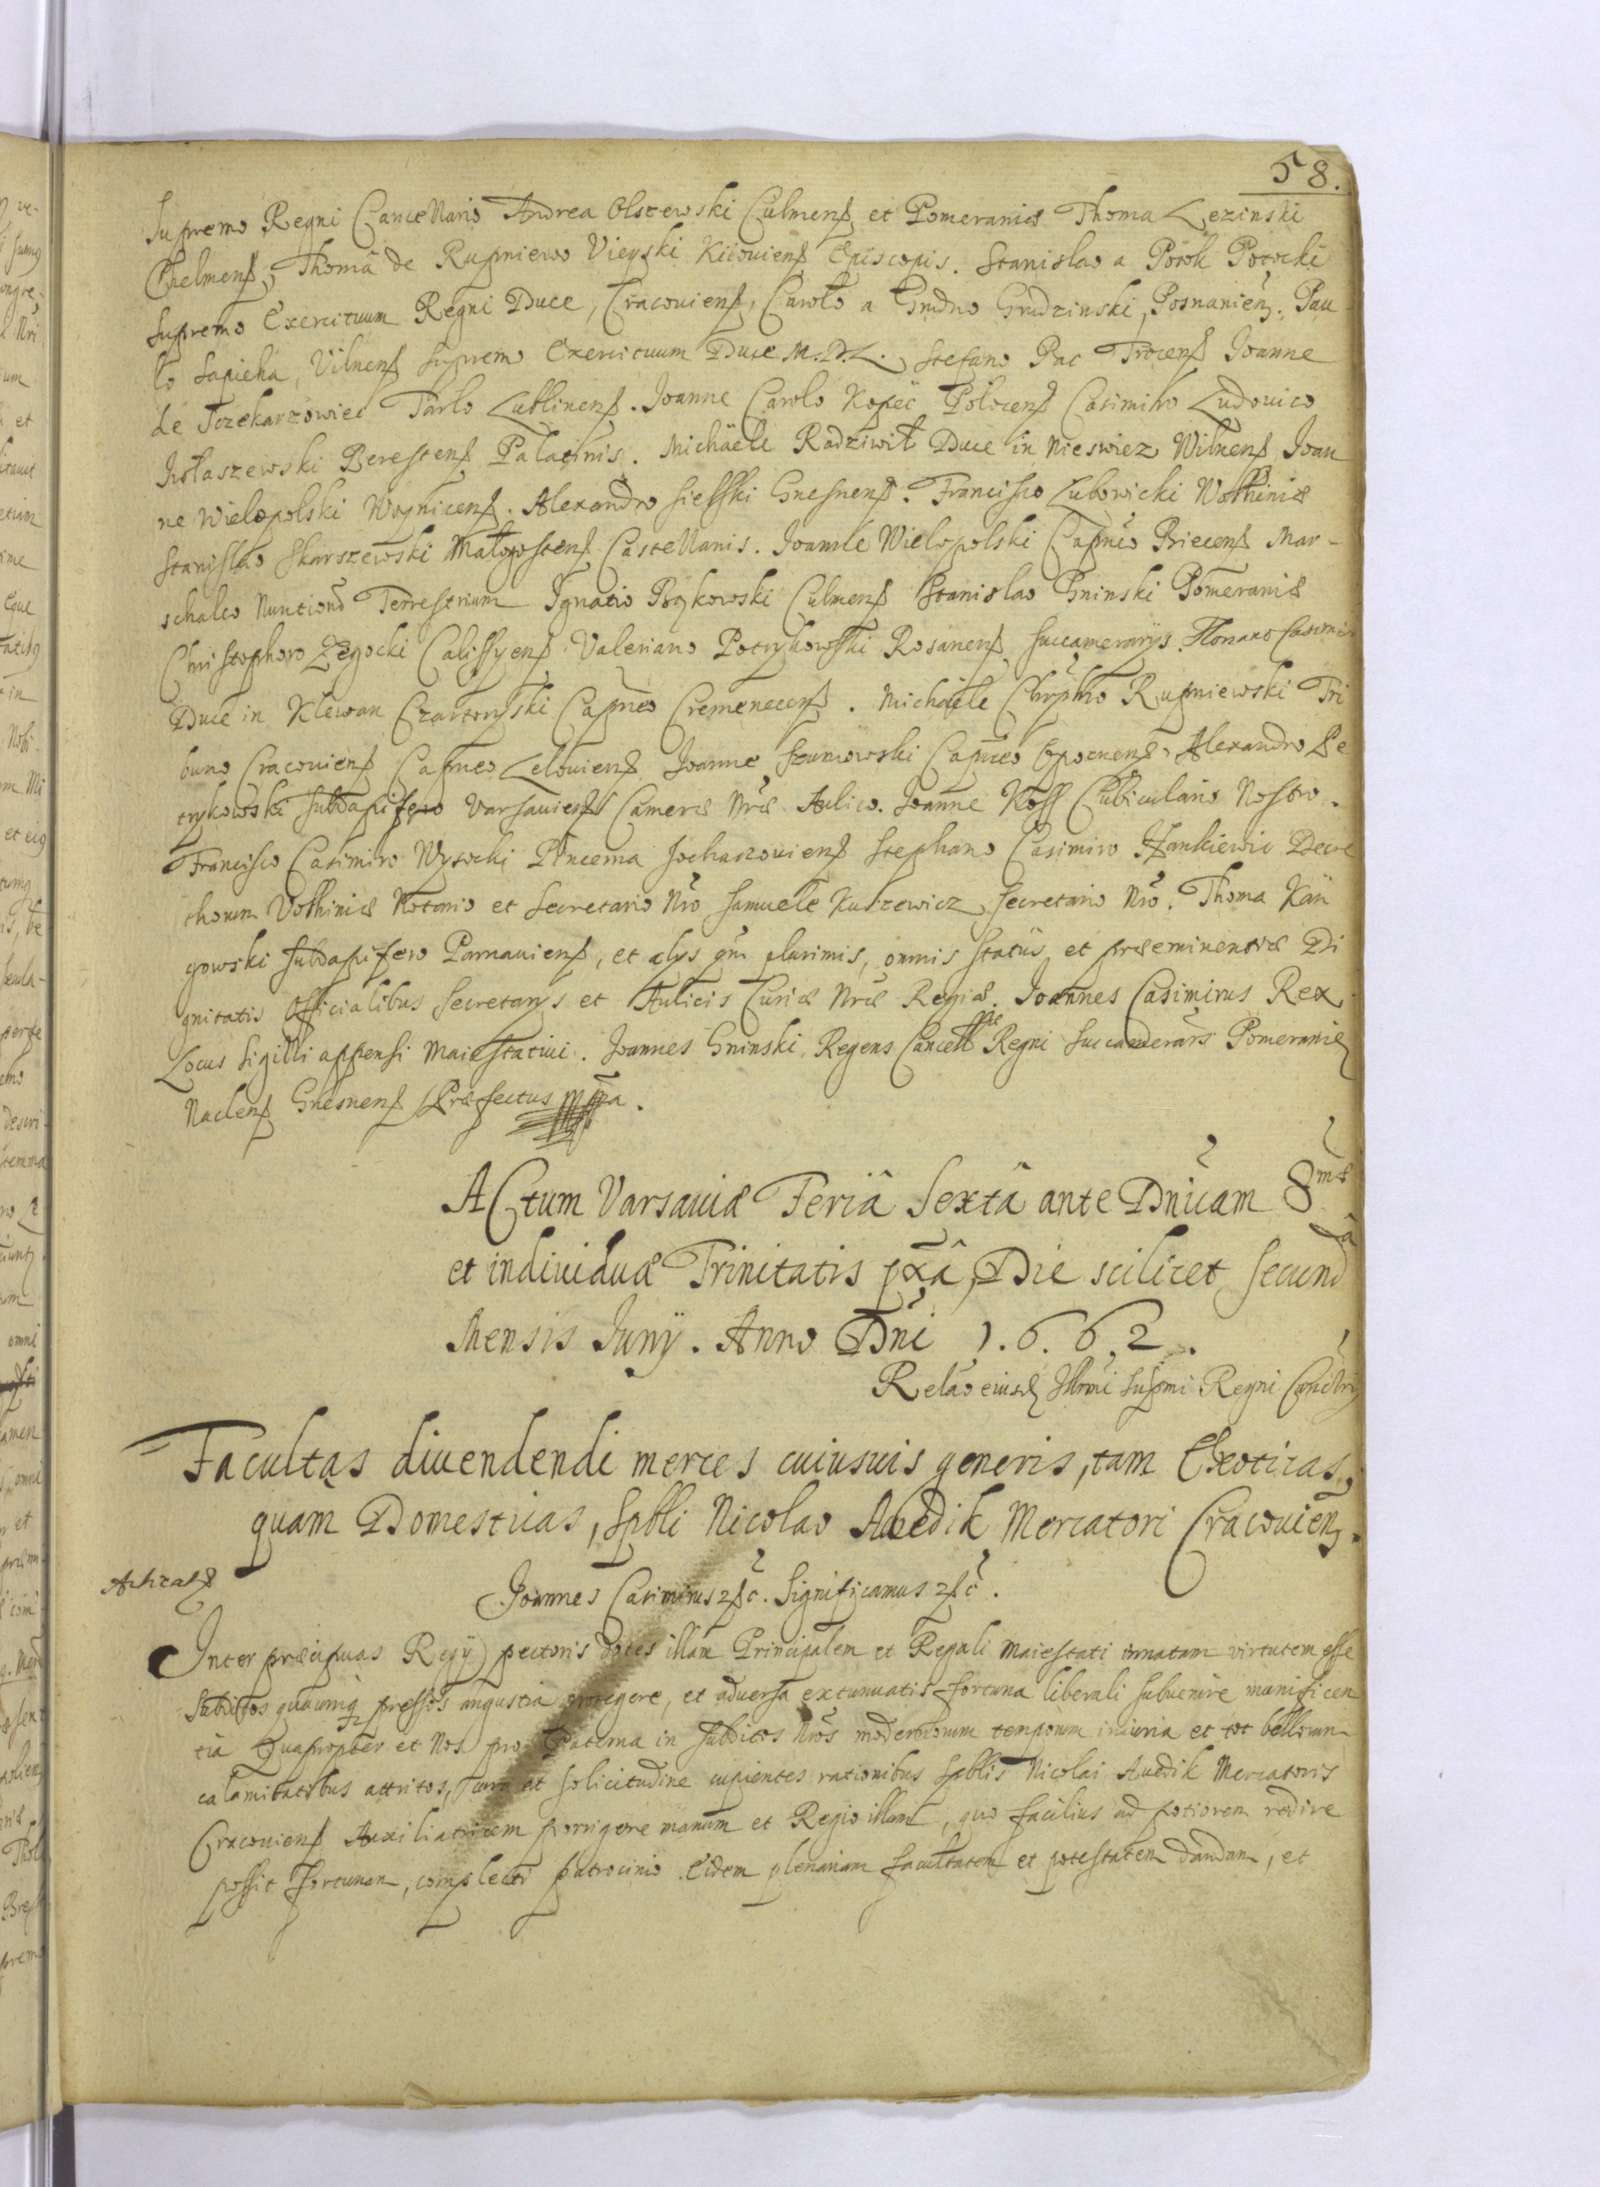 58.
Supremo Regni Cancellario Andrea Olszewski Culmens et Pomeraniæ Thoma Lezinski
Chelmens, Thomâ de Rupniewo Vieyski Kiiouiens Episcopis. Stanislao a Potok Potocki
Supremo Exercituum Regni Duce, Cracouiens, Carolo a Grudno Grudzinski, Posnanien. Pau
lo Sapieha, Vilnens Supremo Exercituum Duce M.D.L. Stefano Pac Trocens Joanne
de Sczekarzowiec Tarlo Lublinens. Joanne Carolo Kopec Polocens Casimiro Ludouico
Berestens Palatinis. Michaële Radziwił Duce in Nieswiez Wilnens, Joan
ne Wielopolski Woynicens. Alexandro Sielski Gnesnens. Francisco Lubowicki Wolhiniæ
Stanislao Skarszewski Małogostens Castellanis. Joanne Wielopolski Capneo Biecens Mar-
schalco Nuntiorum Terrestrium Ignatio Bąkowski Culmens Stanislao Gninski Pomeraniæ
Christophoro Zegocki Calissyens Valeriano Petrykowski Rosanens Succamerarys. Floriano Casimiro
Duce in Klewan Czartoryski Capneo Cremenecens. Michaële Chrypho Rupniewski Tri
buno Cracouiens Capneo Lelouiens Joanne Szumowski Capneo Opocnens, Alexandro Pe
trykowski Subdapifero Varsauiens Cameræ Nræ Aulico. Joanne Koss Cubiculario Nostro.
Francisco Casimiro Wysocki Pincerna Sochaczouiens Stephano Casimiro Hankiewic Decre
thorum Volhiniæ Notario et Secretario Nro Samuele Kuszewicz Secretario Nro. Thoma Kar
gowski Subdapifero Parnauiens, et alys qm plurimis, omnis Status et præeminentiæ Di
gnitatis Officialibus Secretarys et Aulicis Curiæ Nræ Regiæ. Joannes Casimirus Rex.
Locus Sigilli appensi Maiestatiui. Joannes Gninski Regens Cancell Regni Succamerars Pomeraniæ
Naclens Gnesnens Præfectus mpa.
ACtum Varsauiæ Feriâ Sextâ ante Dnicam Smæ
et indiuiduæ Trinitatis pxâ, Die scilicet secundâ
Mensis Juny. Anno Dni 1.6.6.2.
Relao eiusd Illmi Supmi Regni Cancelrÿ
Facultas diuendendi merces cuiusuis generis, tam Exoticas,
quam Domesticas, Spbli Nicolao Auedik Mercatori Cracouien.
Joannes Casimirus etc. Significamus etc.
Inter præcipuas Regÿ pectoris dotes illam Principalem et Regali Maiestati innatam virtutem esse
Subditos quacunq pressos angustia protegere, et aduersa extenuatis fortuna liberali subuenire munificen
tia Quapropter et Nos pro Paterna in Subditos Nros modernorum temporum iniuria et tot bellorum
calamitatibus attritos, cura et solicitudine cupientes rationibus Spblis Nicolai Auedik Mercatoris
Cracouiens Auxiliatricem porrigere manum et Regio illum, quo facilius ad potiorem redire
possit fortunam, complecti patrocinio Eidem plenariam facultatem et potestatem dandam, et